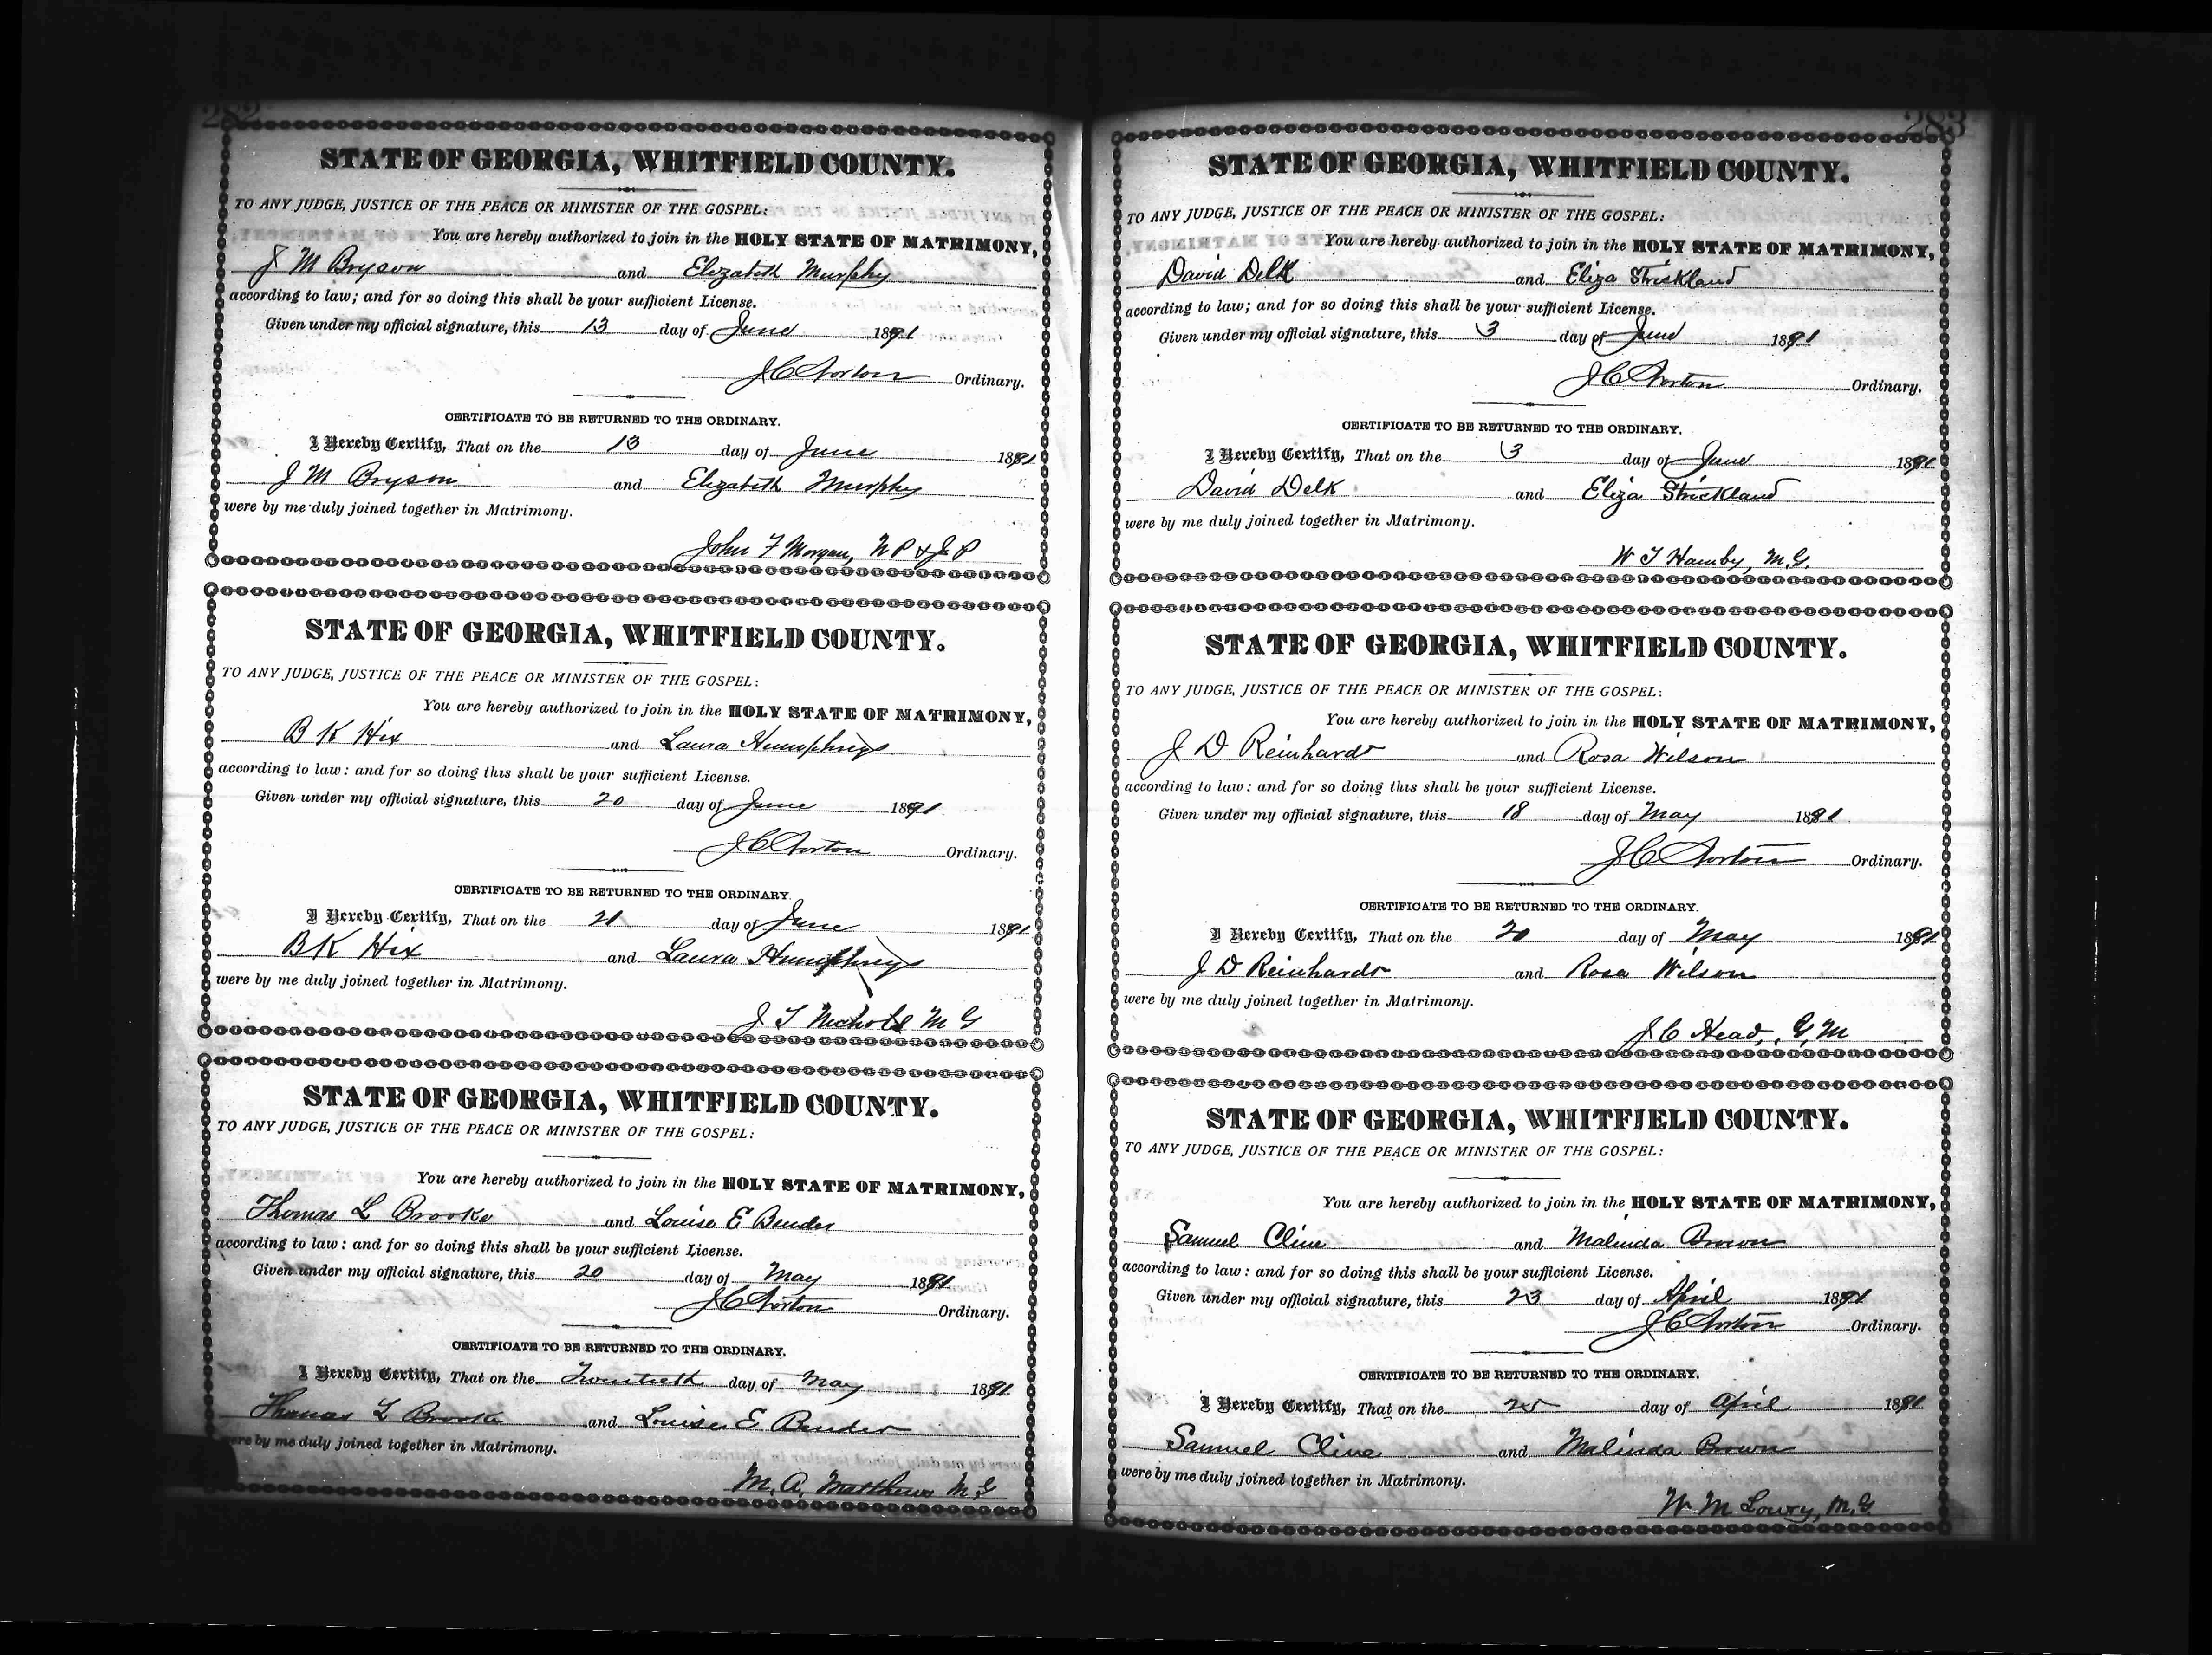 282
STATE OF GEORGIA, WHITFIELD COUNTY.
TO ANY JUDGE, JUSTICE OF THE PEACE OR MINISTER OF THE GOSPEL:
You are hereby authorized to join in the HOLY STATE OF MATRIMONY,
J M Bryson and Elizabeth Murphy
according to law; and for so doing this shall be your sufficient License.
Given under my official signature, this 13 day of June 1891
J C Norton Ordinary.
CERTIFICATE TO BE RETURNED TO THE ORDINARY.
I Hereby Certify, That on the 13 day of June 1891
J M Bryson and Elizabeth Murphy
were by me duly joined together in Matrimony.
John F Morgan, N P & J P
STATE OF GEORGIA, WHITFIELD COUNTY.
TO ANY JUDGE, JUSTICE OF THE PEACE OR MINISTER OF THE GOSPEL:
You are hereby authorized to join in the HOLY STATE OF MATRIMONY,
B K Hix and Laura Humphreys
according to law: and for so doing this shall be your sufficient License.
Given under my official signature, this 20 day of June 1891
J C Norton Ordinary.
CERTIFICATE TO BE RETURNED TO THE ORDINARY.
I Hereby Certify, That on the 21 day of June 1891
B K Hix and Laura Humphreys
were by me duly joined together in Matrimony.
J T Nichols M G
STATE OF GEORGIA, WHITFIELD COUNTY.
TO ANY JUDGE, JUSTICE OF THE PEACE OR MINISTER OF THE GOSPEL:
You are hereby authorized to join in the HOLY STATE OF MATRIMONY,
Thomas L Brooke and Louise E Bender
according to law: and for so doing this shall be your sufficient License.
Given under my official signature, this 20 day of May 1891
J C Norton Ordinary.
CERTIFICATE TO BE RETURNED TO THE ORDINARY.
I Hereby Certify, That on the Twentieth day of May 1891
Thomas L Brooke and Louise E Bender
were by me duly joined together in Matrimony.
M. A. Matthews M. G
283
STATE OF GEORGIA, WHITFIELD COUNTY.
TO ANY JUDGE, JUSTICE OF THE PEACE OR MINISTER OF THE GOSPEL:
You are hereby authorized to join in the HOLY STATE OF MATRIMONY,
David Delk and Eliza Strickland
according to law; and for so doing this shall be your sufficient License.
Given under my official signature, this 3 day of June 1891
J C Norton Ordinary.
CERTIFICATE TO BE RETURNED TO THE ORDINARY.
I Hereby Certify, That on the 3 day of June 1891
David Delk and Eliza Strickland
were by me duly joined together in Matrimony.
W T Hamby, M.G.
STATE OF GEORGIA, WHITFIELD COUNTY.
TO ANY JUDGE, JUSTICE OF THE PEACE OR MINISTER OF THE GOSPEL:
You are hereby authorized to join in the HOLY STATE OF MATRIMONY,
J D Reinhardt and Rosa Wilson
according to law: and for so doing this shall be your sufficient License.
Given under my official signature, this 18 day of May 1891
J C Norton Ordinary.
CERTIFICATE TO BE RETURNED TO THE ORDINARY.
I Hereby Certify, That on the 20 day of May 1891
J D Reinhardt and Rosa Wilson
were by me duly joined together in Matrimony.
J C Head, G, M
STATE OF GEORGIA, WHITFIELD COUNTY.
TO ANY JUDGE, JUSTICE OF THE PEACE OR MINISTER OF THE GOSPEL:
You are hereby authorized to join in the HOLY STATE OF MATRIMONY,
Samuel Cline and Malinda Brown
according to law: and for so doing this shall be your sufficient License.
Given under my official signature, this 23 day of April 1891
J C Norton Ordinary.
CERTIFICATE TO BE RETURNED TO THE ORDINARY.
I Hereby Certify, That on the 25 day of April 1891
Samuel Cline and Malinda Brown
were by me duly joined together in Matrimony.
W M Lowry, M.G.